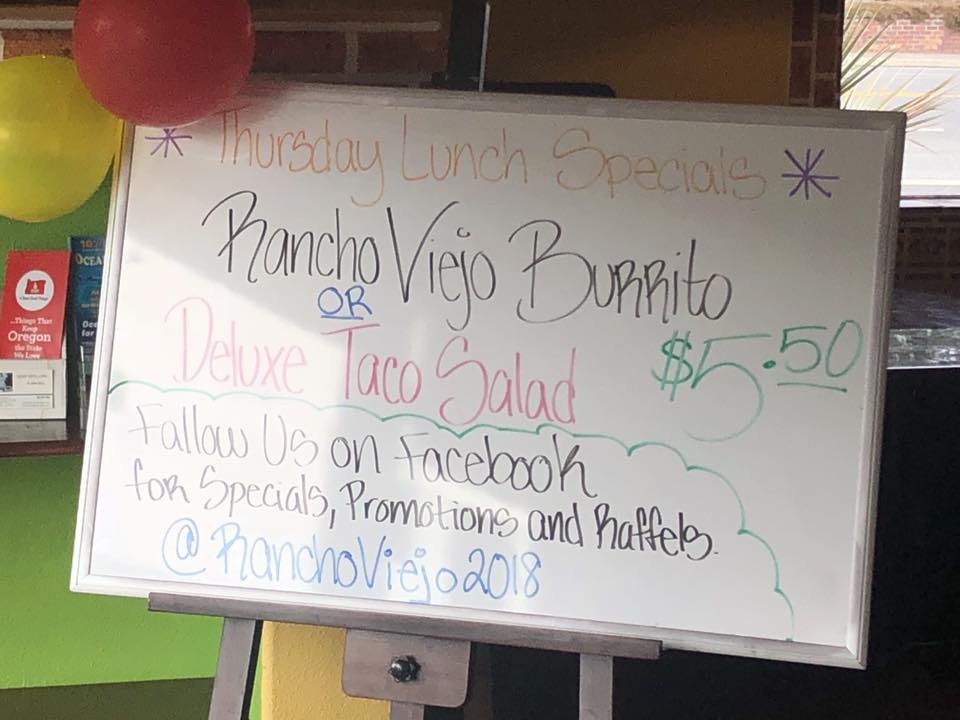 * Thursday Lunch Specials *
Rancho Viejo Burrito
OR
Deluxe Taco Salad
$5.50
Fallow Us on Facebook
for Specials, Promotions and Raffels.
@RanchoViejo2018
...Things That
Keep
Oregon
the State
We Love